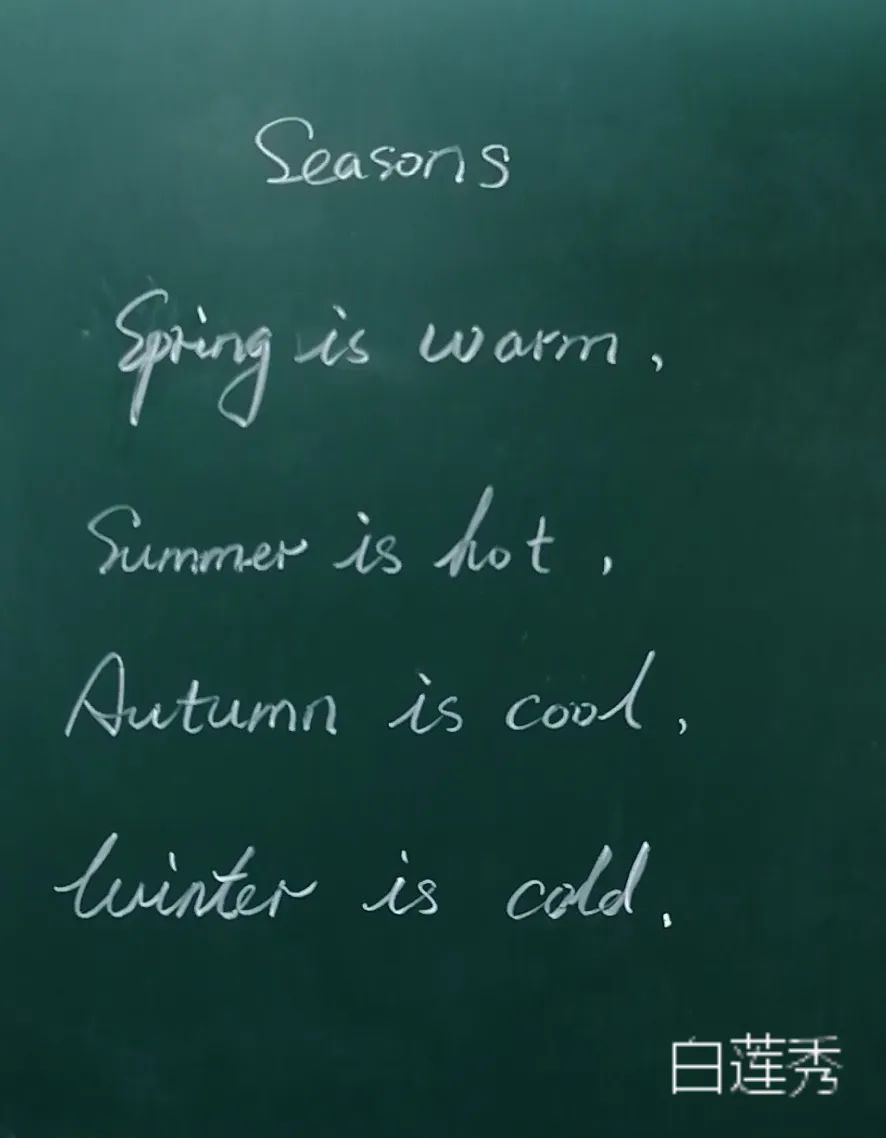 Seasons
Spring is warm,
Summer is hot,
Autumn is cool,
Winter is cold.
白莲秀